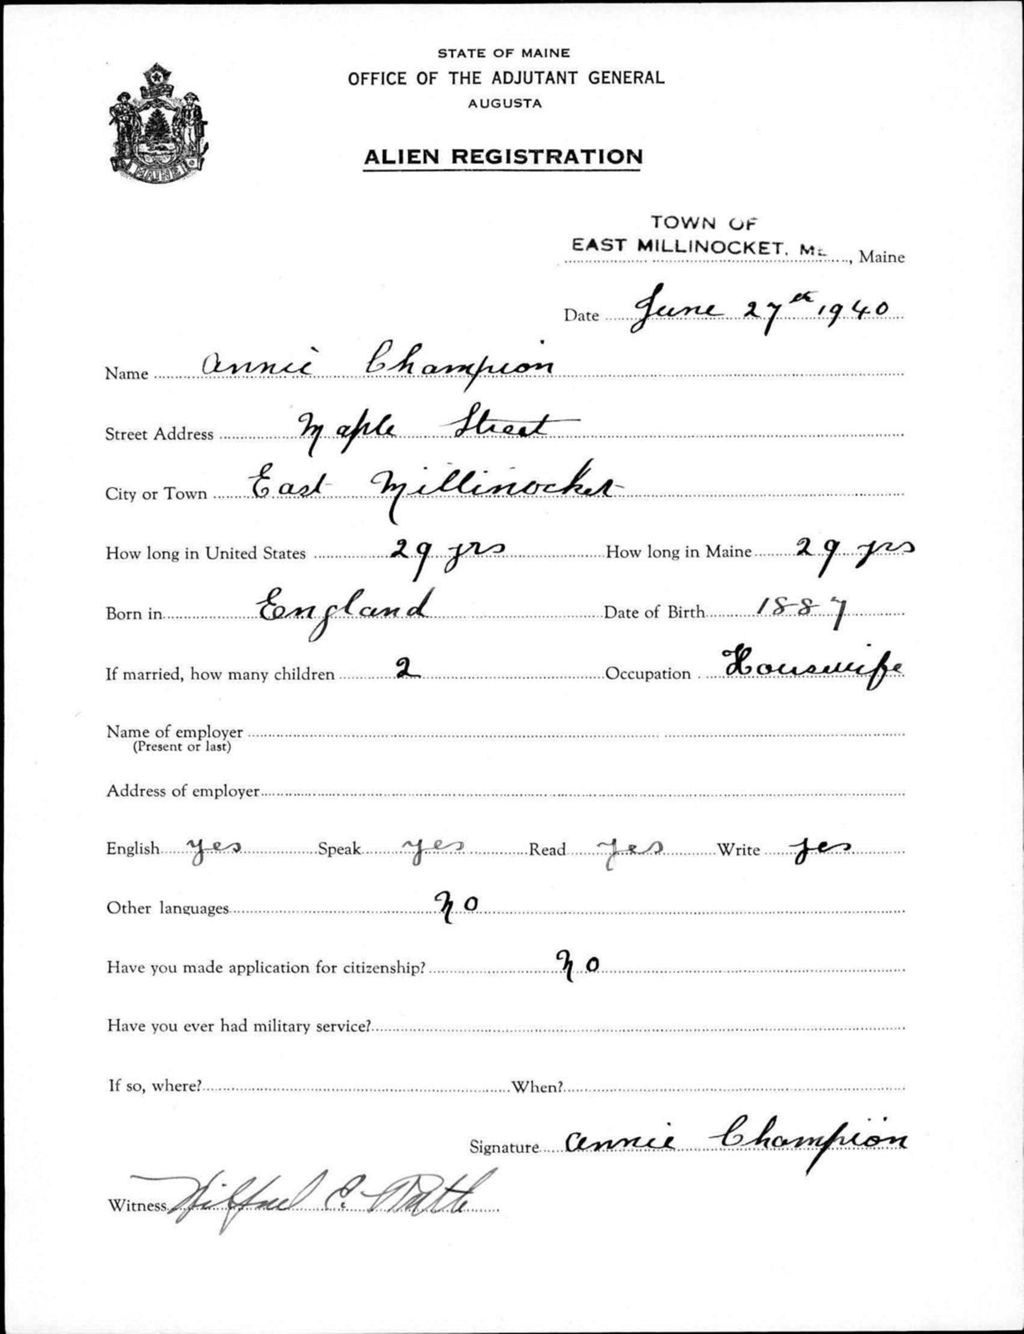 STATE OF MAINE
OFFICE OF THE ADJUTANT GENERAL
AUGUSTA
ALIEN REGISTRATION
MAINE
TOWN OF
EAST MILLINOCKET, ME, Maine
Date June 27th 1940
Name Annie Champion
Street Address Maple Street
City or Town East Millinocket
How long in United States 29 yrs How long in Maine 29 yrs
Born in England Date of Birth 1887
If married, how many children 2 Occupation Housewife
Name of employer
(Present or last)
Address of employer
English yes Speak yes Read yes Write yes
Other languages No
Have you made application for citizenship? No
Have you ever had military service?
If so, where? When?
Signature Annie Champion
Witness Wilfred E.